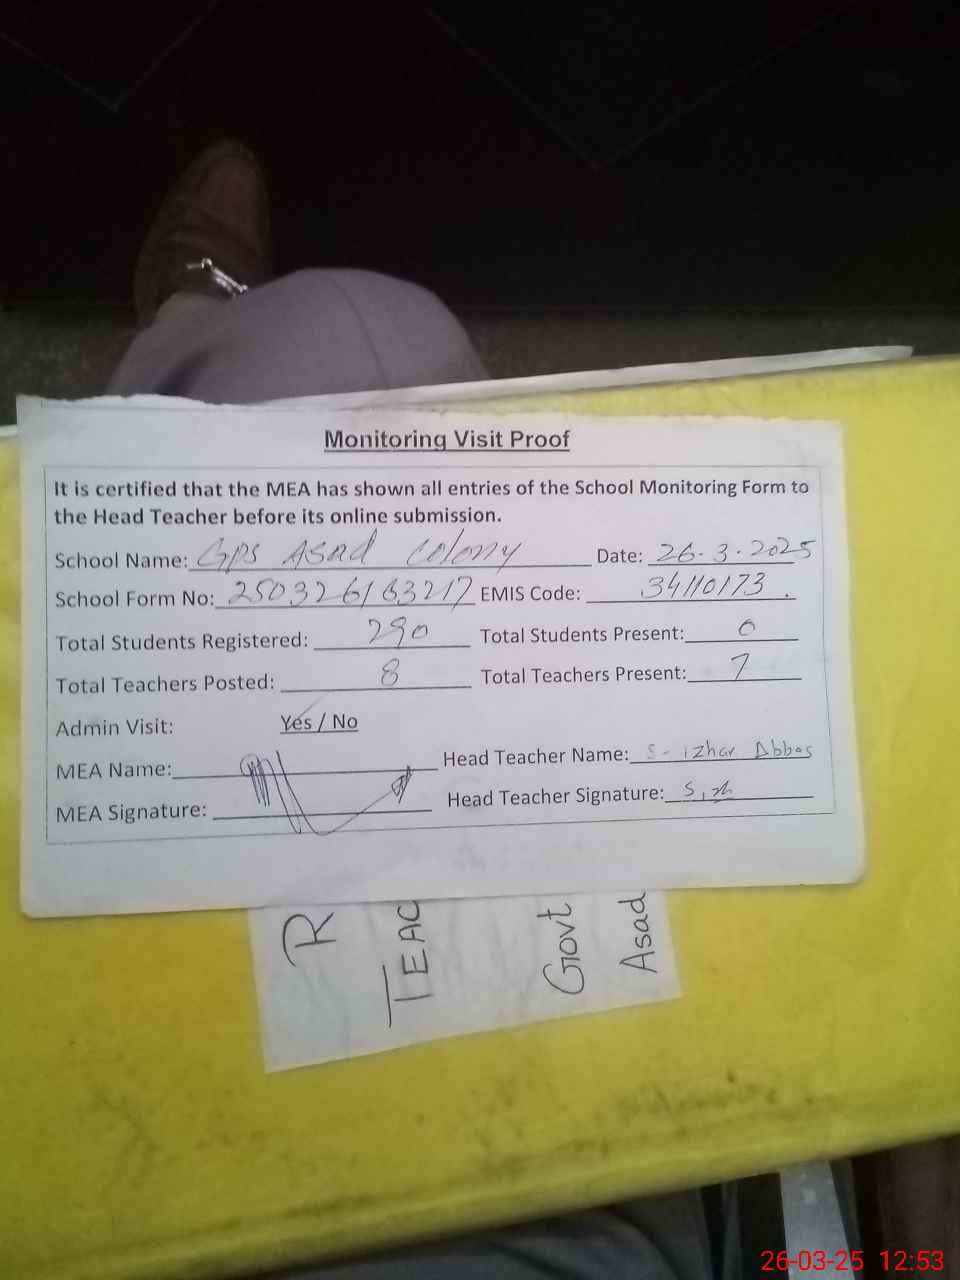 Monitoring Visit Proof
It is certified that the MEA has shown all entries of the School Monitoring Form to
the Head Teacher before its online submission.
School Name: GPS Asad Colony Date: 26-3-2025
School Form No: 250326163217 EMIS Code: 34110173
Total Students Registered: 290 Total Students Present: 0
Total Teachers Posted: 8 Total Teachers Present: 7
Admin Visit: Yes / No
MEA Name: Head Teacher Name: S-izhar Abbas
MEA Signature: Head Teacher Signature:
R
TEAC
Govt
Asad
26-03-25 12:53